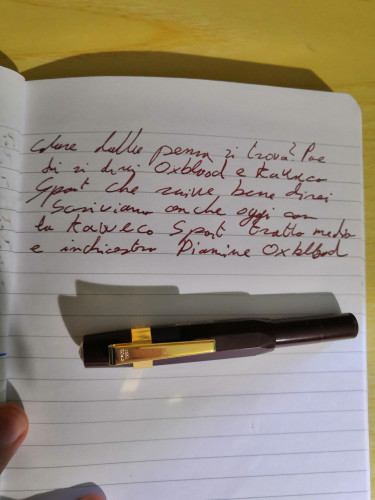 colore della penna si trova? Poe
di zi dirij Oxblood e Kaweco
Sport che scrive bene direi
Scriviamo anche oggi con
la Kaweco Sport tratto medio
e inchiostro Diamine Oxblood